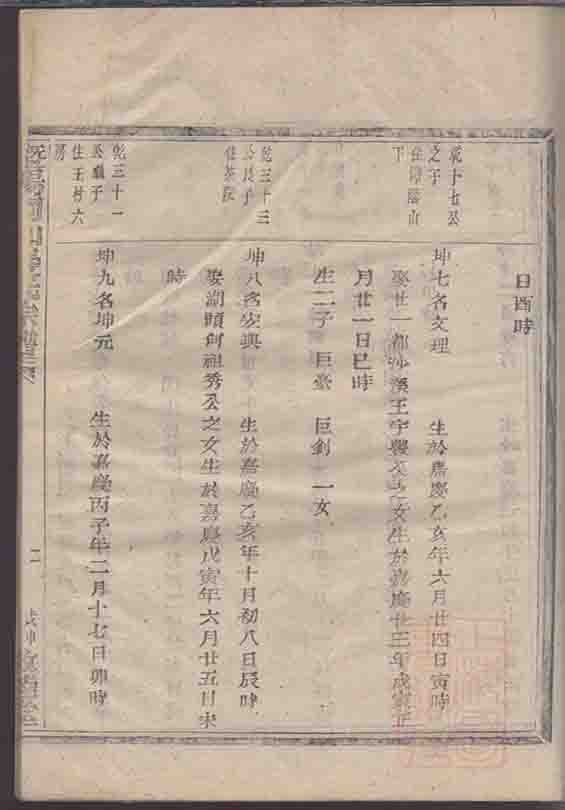 日酉時
乾十七公
之子
住
山
下
坤七名文理 生於嘉慶乙亥年六月廿四日寅時
娶廿一都 溪王宇 公之女生於嘉慶廿三年戊寅正
月廿一日巳時
生二子 巨 巨釗 一女
乾三十三
公長子
住茶段
坤八名 興 生於嘉慶乙亥年十月初八日辰時
娶湖頭何祖秀公之女生於嘉慶戊寅年六月廿五日未
時
乾三十一
公 子
住王村六
房
坤九名坤元 生於嘉慶丙子年二月十七日卯時
二